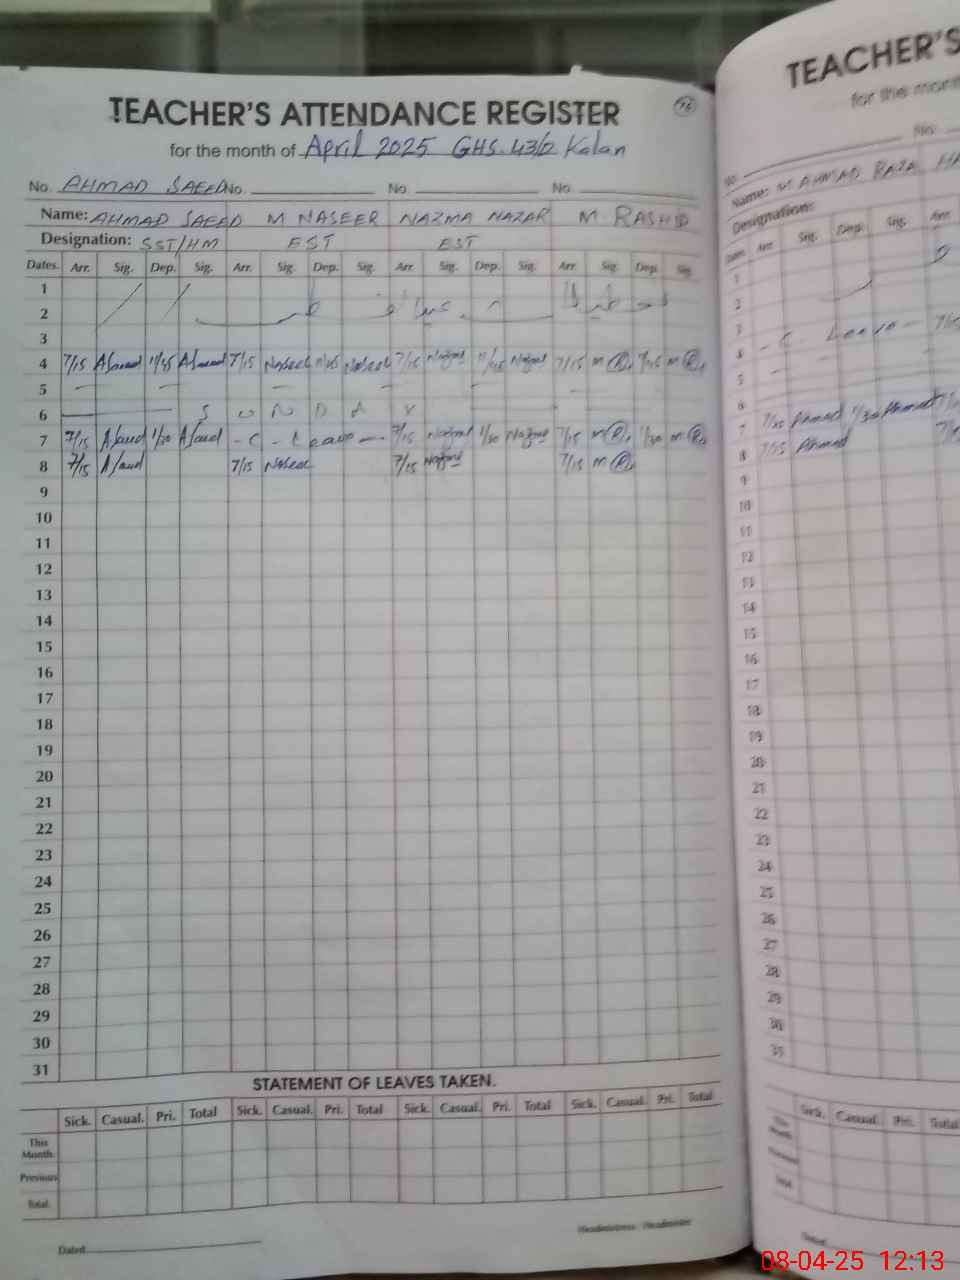 TEACHER'S ATTENDANCE REGISTER
for the month of April 2025 GHS 43/2 Kalan
No. AHMAD SAEED No. No No
Name: AHMAD SAEED M NASEER NAZMA NAZAR M. RASHID
Designation: SST/HM EST EST
Dates. Arr. Sig. Dep. Sig. Arr. Sig. Dep. Sig. Arr. Sig. Dep. Sig. Arr. Sig. Dep. Sig.
1
2
3
4 7/15 7/15 Naseer Naseer 7/15 Nazma Nazma 7/15 m R. m R.
5
6 S U N D A Y
7 7/15 1/30 - C - Leave - 7/15 Nazma 1/30 Nazma 7/15 m R. 1/30 m R.
8 7/15 7/15 Naseer 7/15 Nazma 7/15 m R.
9
10
11
12
13
14
15
16
17
18
19
20
21
22
23
24
25
26
27
28
29
30
31
STATEMENT OF LEAVES TAKEN.
Sick. Casual. Pri. Total Sick. Casual. Pri. Total Sick. Casual. Pri. Total Sick. Casual. Pri. Total
This
Month.
Previous
Total.
Dated
Headmistress / Headmaster
TEACHER'S
for the month
No.
Name: M AHMAD RAZA
Designation:
Dates Arr. Sig. Dep. Sig. Arr.
1
2
3
4 - C - Leave - 7/15
5
6
7 7/15 Ahmad 1/30 Ahmad
8 7/15 Ahmad
9
10
11
12
13
14
15
16
17
18
19
20
21
22
23
24
25
26
27
28
29
30
31
Sick. Casual. Pri. Total
This
Month.
Previous
Total.
Dated
08-04-25 12:13